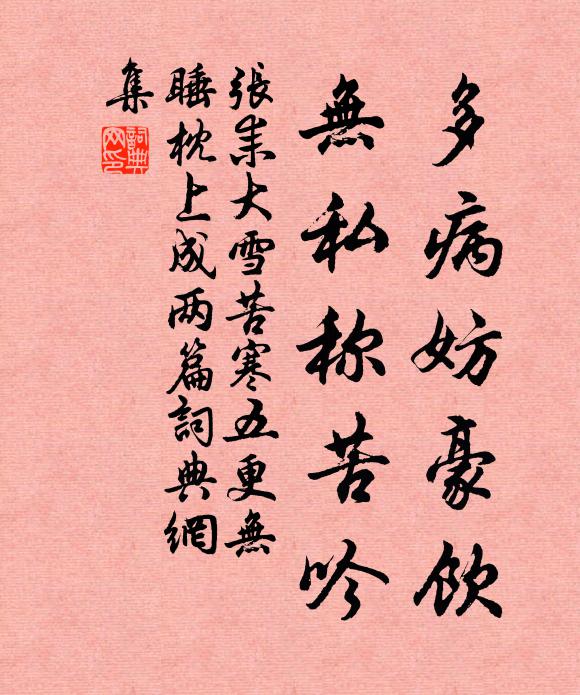 多病妨豪飲
無私称苦吟
張耒大雪苦寒五更無
睡枕上成两篇詞典網
集
詞典網印